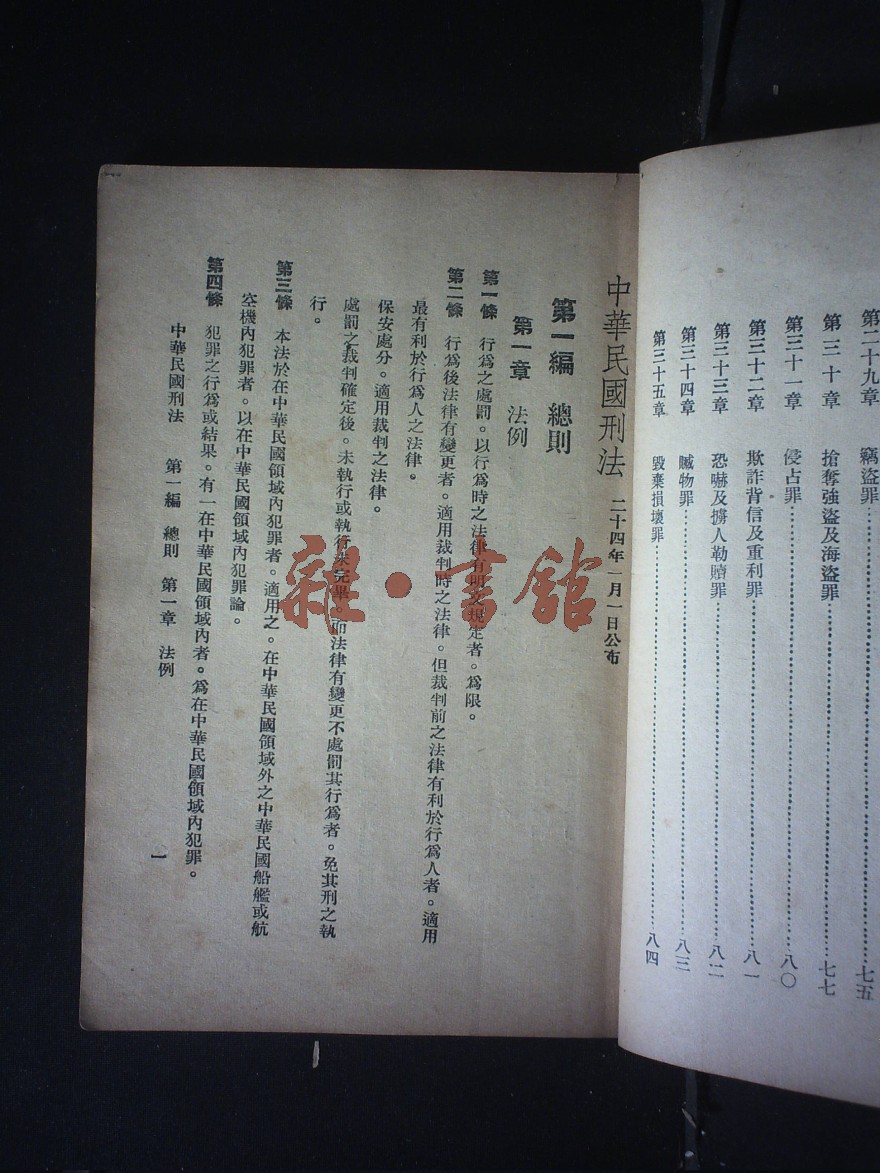 第二十九章 竊盜罪……七五
第三十章 搶奪強盜及海盜罪……七七
第三十一章 侵占罪……八〇
第三十二章 欺詐背信及重利罪……八一
第三十三章 恐嚇及擄人勒贖罪……八二
第三十四章 贓物罪……八三
第三十五章 毀棄損壞罪……八四
中華民國刑法 二十四年一月一日公布
第一編 總則
第一章 法例
第一條 行為之處罰。以行為時之法律有明文規定者。為限。
第二條 行為後法律有變更者。適用裁判時之法律。但裁判前之法律有利於行為人者。適用
最有利於行為人之法律。
保安處分。適用裁判之法律。
處罰之裁判確定後。未執行或執行未完畢。而法律有變更不處罰其行為者。免其刑之執
行。
第三條 本法於在中華民國領域內犯罪者。適用之。在中華民國領域外之中華民國船艦或航
空機內犯罪者。以在中華民國領域內犯罪論。
第四條 犯罪之行為或結果。有一在中華民國領域內者。為在中華民國領域內犯罪。
中華民國刑法 第一編 總則 第一章 法例 一
雜·書館